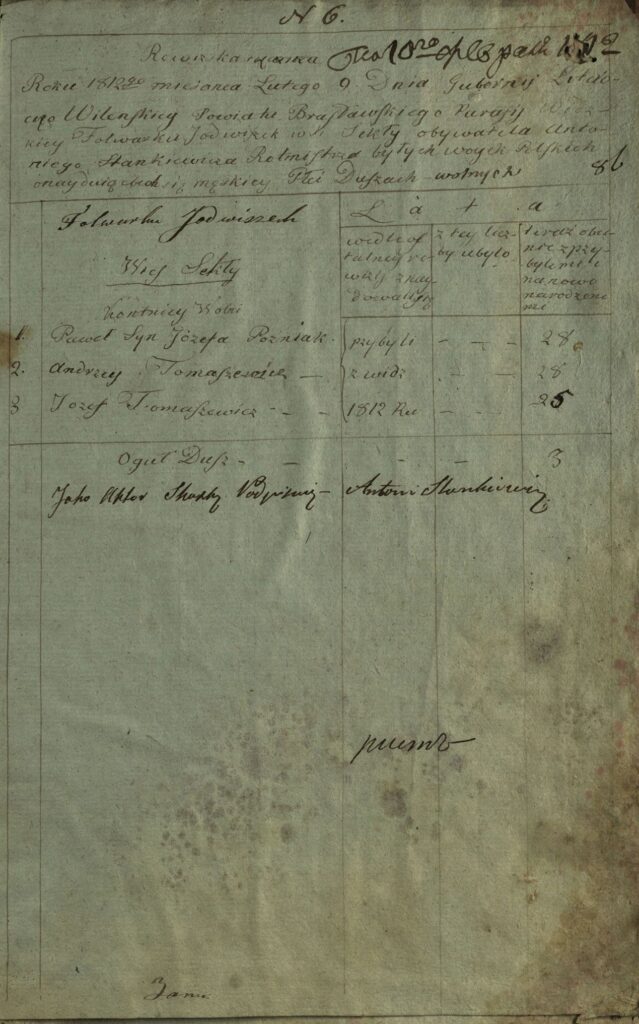 N 6.
Rewizka
Roku 1812go miesianca Lutego 9 Dnia Gubernij Litew
sko Wilenskiey Powiatu Brasławskiego Parafij Widz
kiey Folwarku Jodwiszek wsi Sekły obywatela Anto
niego Stankiewicza Rotmistrza byłych woysk Polskich
męskiey Płci Duszach wolnych
86
Folwarku Jodwiszek
Wieś Sekły
Kontnicy Wolni
L a t a
według
z tey licz
by ubyło
teraz
nie z przy
byłemi i
nanowo
narodzone
mi
1. Paweł Syn Józefa Pozniak - przybyli - - - 28
2. Andrzey Tomaszewicz - z widz - - - 28
3 Jozef Tomaszewicz - - 1812 Ru - - - 25
Oguł Dusz - - - - 3
Jako Aktor Skazkę Podpisuię - Antoni Stankiewicz